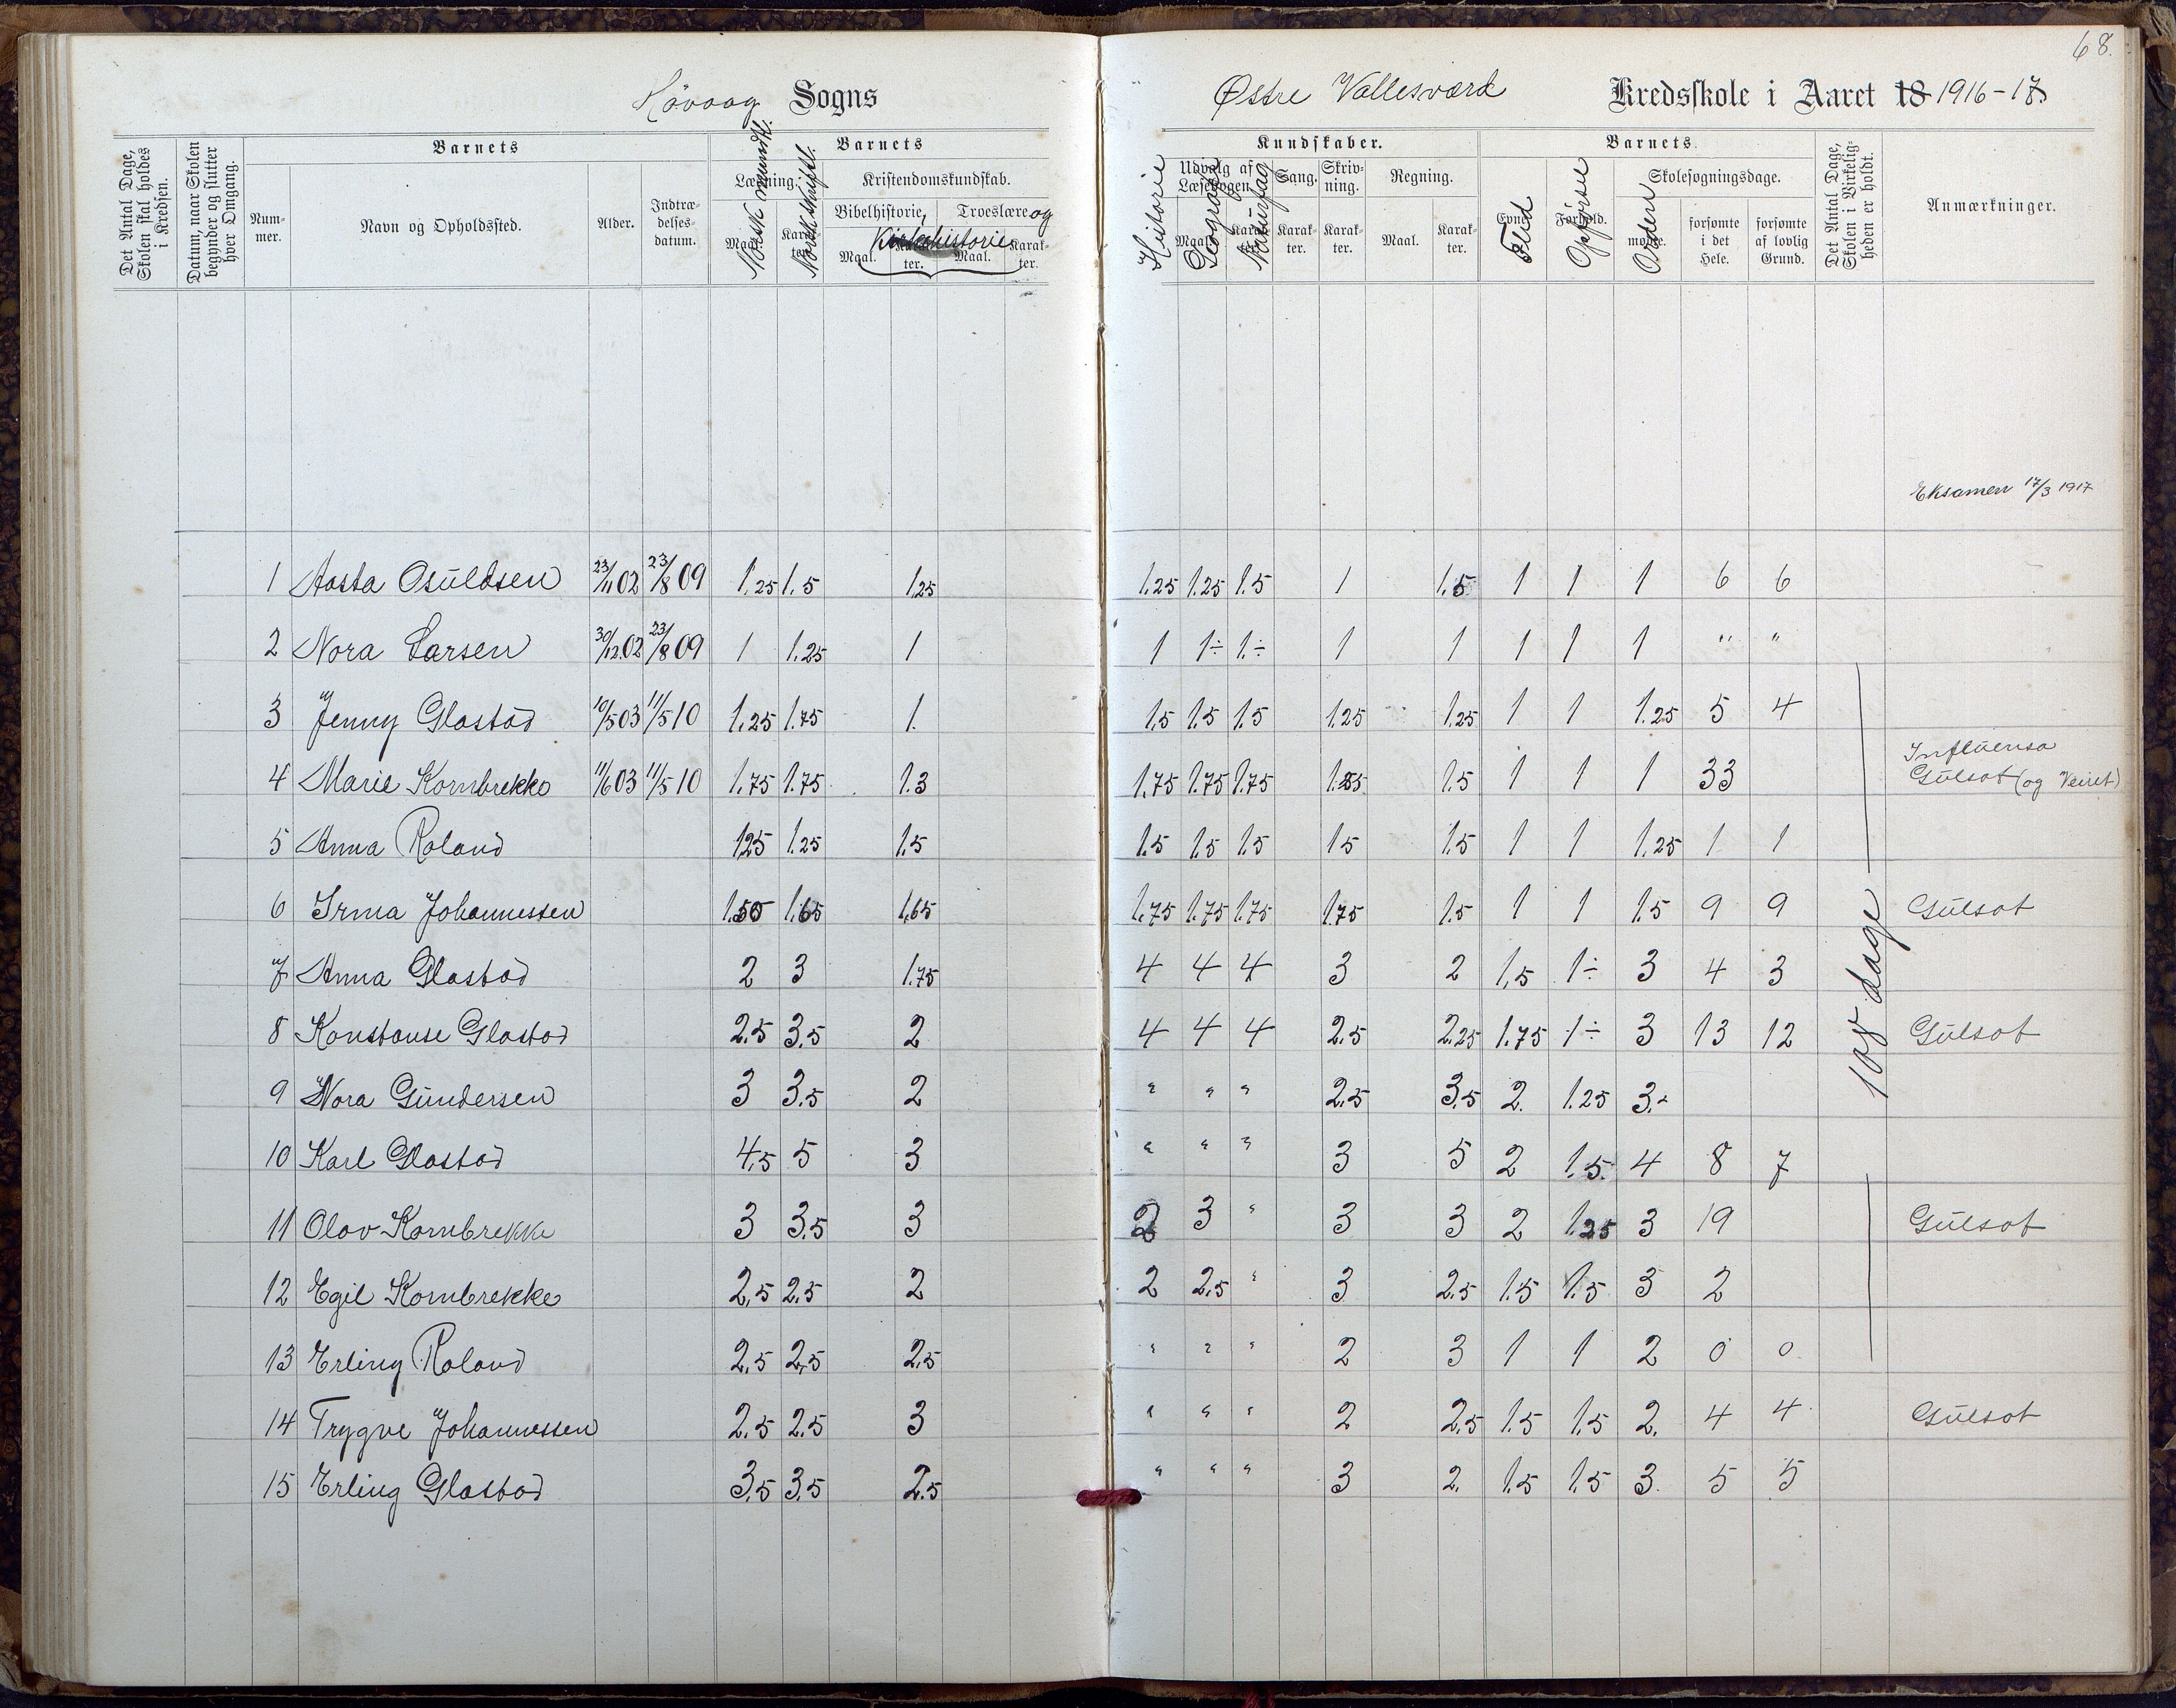 68.
Høvaag Sogns
Østre Vallesværd Kredsskole i Aaret 18 1916-17
Det Antal Dage, Skolen skal holdes i Kredsen.
Datum, naar Skolen begynder og slutter hver Omgang.
Barnets
Nummer.
Navn og Opholdssted.
Alder.
Indtrædelsesdatum.
Barnets
Læsning.
Maal.
Karakter.
Norsk mundtl.
Norsk skriftl.
Kristendomskundskab.
Bibelhistorie, Troeslære og
Kirkehistorie
Maal. Karakter. Maal. Karakter.
Kundskaber.
Historie
Udvalg af Læsebogen.
Maal. Karakter.
Geografi
Naturfag
Sang. Karakter.
Skrivning. Karakter.
Regning.
Maal. Karakter.
Barnets
Evner. Flid
Forhold. Opførsel
Skolesøgningsdage.
mødte. Orden
forsømte i det Hele.
forsømte af lovlig Grund.
Det Antal Dage, Skolen i Virkeligheden er holdt.
Anmærkninger.
Eksamen 17/3 1917
1 Aasta Osuldsen 23/11 02 23/8 09 1,25 1.5 1,25 1.25 1.25 1.5 1 1.5 1 1 1 6 6
2 Nora Larsen 30/12 02 23/8 09 1 1.25 1 1 1÷ 1.÷ 1 1 1 1 1 " "
3 Jenny Glastad 10/5 03 11/5 10 1,25 1.75 1. 1.5 1.5 1.5 1.25 1.25 1 1 1.25 5 4
4 Marie Kornbrekke 11/6 03 11/5 10 1,75 1.75 1.3 1.75 1.75 1.75 1.25 1.5 1 1 1 33 Influensa
Gulsot (og Veiret)
5 Anna Roland 1,25 1.25 1.5 1.5 1.5 1.5 1.5 1.5 1 1 1.25 1 1
6 Irma Johannessen 1.50 1.65 1,65 1.75 1.75 1.75 1.75 1.5 1 1 1.5 9 9 Gulsot
7 Anna Glastad 2 3 1.75 4 4 4 3 2 1,5 1÷ 3 4 3
8 Konstanse Glastad 2.5 3.5 2 4 4 4 2.5 2.25 1.75 1÷ 3 13 12 Gulsot
108 dage
9 Nora Gundersen 3 3.5 2 " " " 2.5 3.5 2. 1.25 3.-
10 Karl Glastad 4.5 5 3 " " " 3 5 2 1.5. 4 8 7
11 Olav Kornbrekke 3 3.5 3 2 3 " 3 3 2 1.25 3 19 Gulsot
12 Egil Kornbrekke 2,5 2.5 2 2 2.5 " 3 2.5 1.5 1.5 3 2
13 Erling Roland 2.5 2,5 2.5 " " " 2 3 1 1 2 0 0
14 Trygve Johannessen 2.5 2.5 3 " " " 2 2.5 1.5 1.5 2. 4 4 Gulsot
15 Erling Glastad 3.5 3.5 2.5 " " " 3 2. 1.5 1.5 3. 5 5